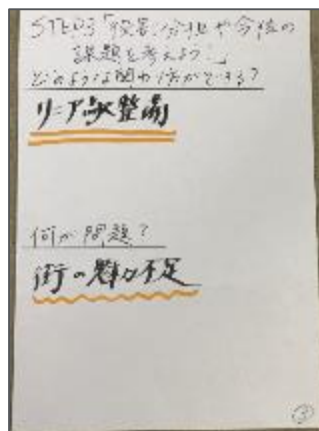 STEP3「役割分担や今後の
課題を考えよう!」
どのような関わり方ができる?
リニア 整備
何が問題?
街の魅力不足
③